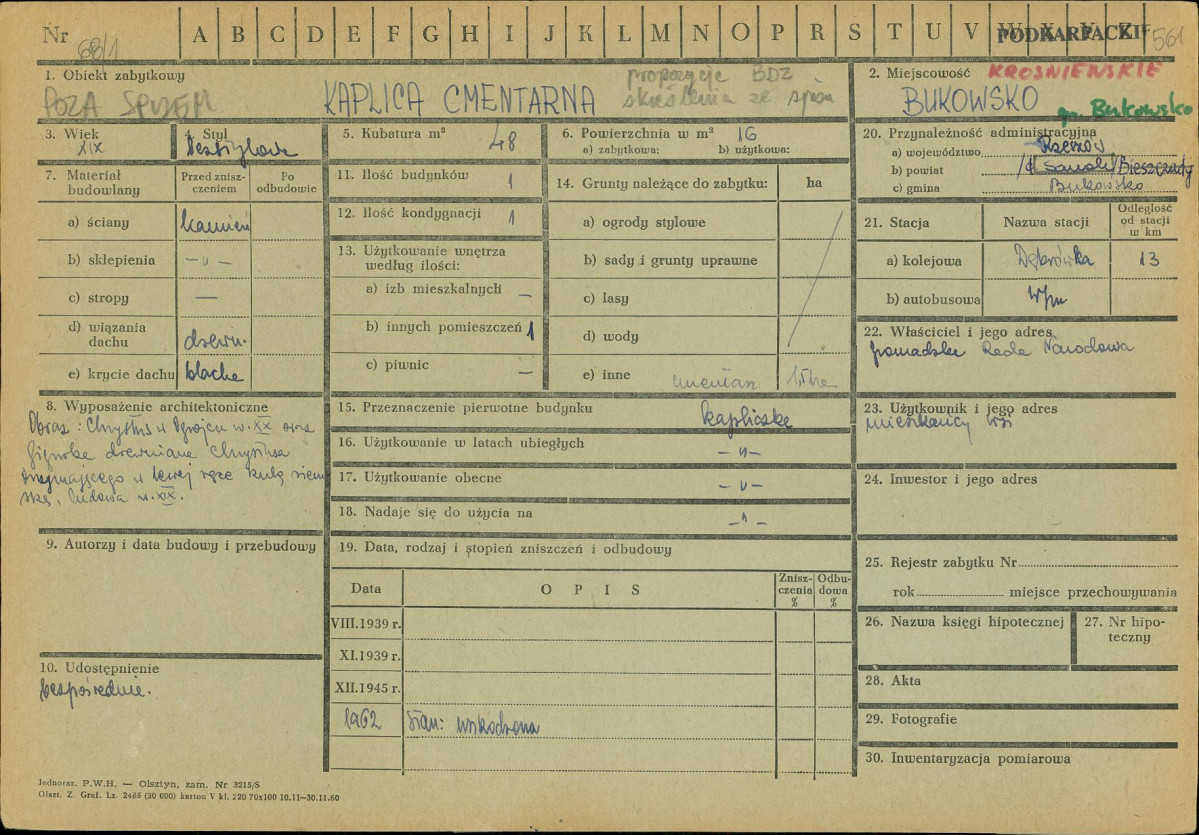 Nr 68/1 A B C D E F G H I J K L M N O P R S T U V W X Y Z PODKARPACKIE 561
1. Obiekt zabytkowy
POZA SPISEM KAPLICA CMENTARNA
propozycje BDZ
skreślenia ze spisu
2. Miejscowość KROŚNIEŃSKIE
BUKOWSKO
gm. Bukowsko
3. Wiek
XIX
4. Styl
Bezstylowa
5. Kubatura m³ 48
6. Powierzchnia w m² 16
a) zabytkowa: b) użytkowa:
7. Materiał budowlany
Przed zniszczeniem
Po odbudowie
a) ściany kamień
b) sklepienia -„-
c) stropy —
d) wiązania dachu drewn.
e) krycie dachu blacha
8. Wyposażenie architektoniczne
Obraz: Chrystus w Ogrójcu w. XX oraz
figurka drewniana Chrystusa
trzymającego w lewej ręce kulę ziem
ską, ludowa w. XIX.
9. Autorzy i data budowy i przebudowy
10. Udostępnienie
bezpośrednie.
11. Ilość budynków 1
12. Ilość kondygnacji 1
13. Użytkowanie wnętrza
według ilości:
a) izb mieszkalnych —
b) innych pomieszczeń 1
c) piwnic —
14. Grunty należące do zabytku: ha
a) ogrody stylowe
b) sady i grunty uprawne
c) lasy
d) wody
e) inne cmentarz 1,5 ha
15. Przeznaczenie pierwotne budynku kapliczka
16. Użytkowanie w latach ubiegłych -„-
17. Użytkowanie obecne -„-
18. Nadaje się do użycia na -„-
19. Data, rodzaj i stopień zniszczeń i odbudowy
Data O P I S Zniszczenia % Odbudowa %
VIII.1939 r.
XI.1939 r.
XII.1945 r.
1962 Stan: uszkodzona
20. Przynależność administracyjna
a) województwo Rzeszów
b) powiat Sanok/Bieszczady
c) gmina Bukowsko
21. Stacja Nazwa stacji Odległość od stacji w km
a) kolejowa Dąbrówka 13
b) autobusowa w/m
22. Właściciel i jego adres
Gromadzka Rada Narodowa
23. Użytkownik i jego adres
mieszkańcy wsi
24. Inwestor i jego adres
25. Rejestr zabytku Nr
rok miejsce przechowywania
26. Nazwa księgi hipotecznej
27. Nr hipoteczny
28. Akta
29. Fotografie
30. Inwentaryzacja pomiarowa
Jednoraz. P.W.H. — Olsztyn, zam. Nr 3215/S
Olszt. Z. Graf. Lz. 2485 (30 000) karton V kl. 220 70x100 10.11—30.11.60